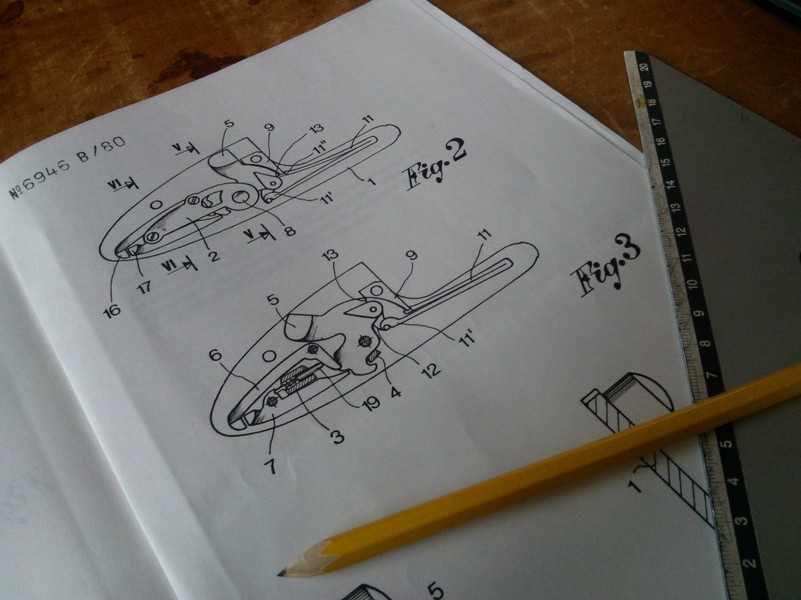 Nº6946 B/80
5
9
13
11'
11
V
VI
1
Fig.2
11'
8
V
2
VI
17
16
11
9
13
Fig.3
5
11'
6
12
4
19
3
7
1
5
20
19
18
17
16
15
14
13
12
11
10
9
8
7
5
4
3
2